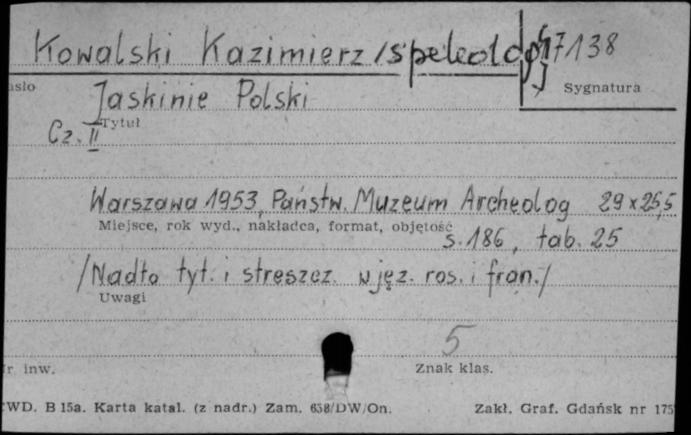 Kowalski Kazimierz /speleolog/ 7138
asło
Jaskinie Polski
Sygnatura
Tytuł
Cz. II
Warszawa 1953, Państw. Muzeum Archeolog 29 x 25,5
Miejsce, rok wyd., nakładca, format, objętość
s. 186, tab. 25
/Nadto tyt. i streszcz. w jęz. ros. i fran./
Uwagi
5
r inw.
Znak klas.
WD. B 15a. Karta katal. (z nadr.) Zam. 658/DW/On.
Zakł. Graf. Gdańsk nr 175